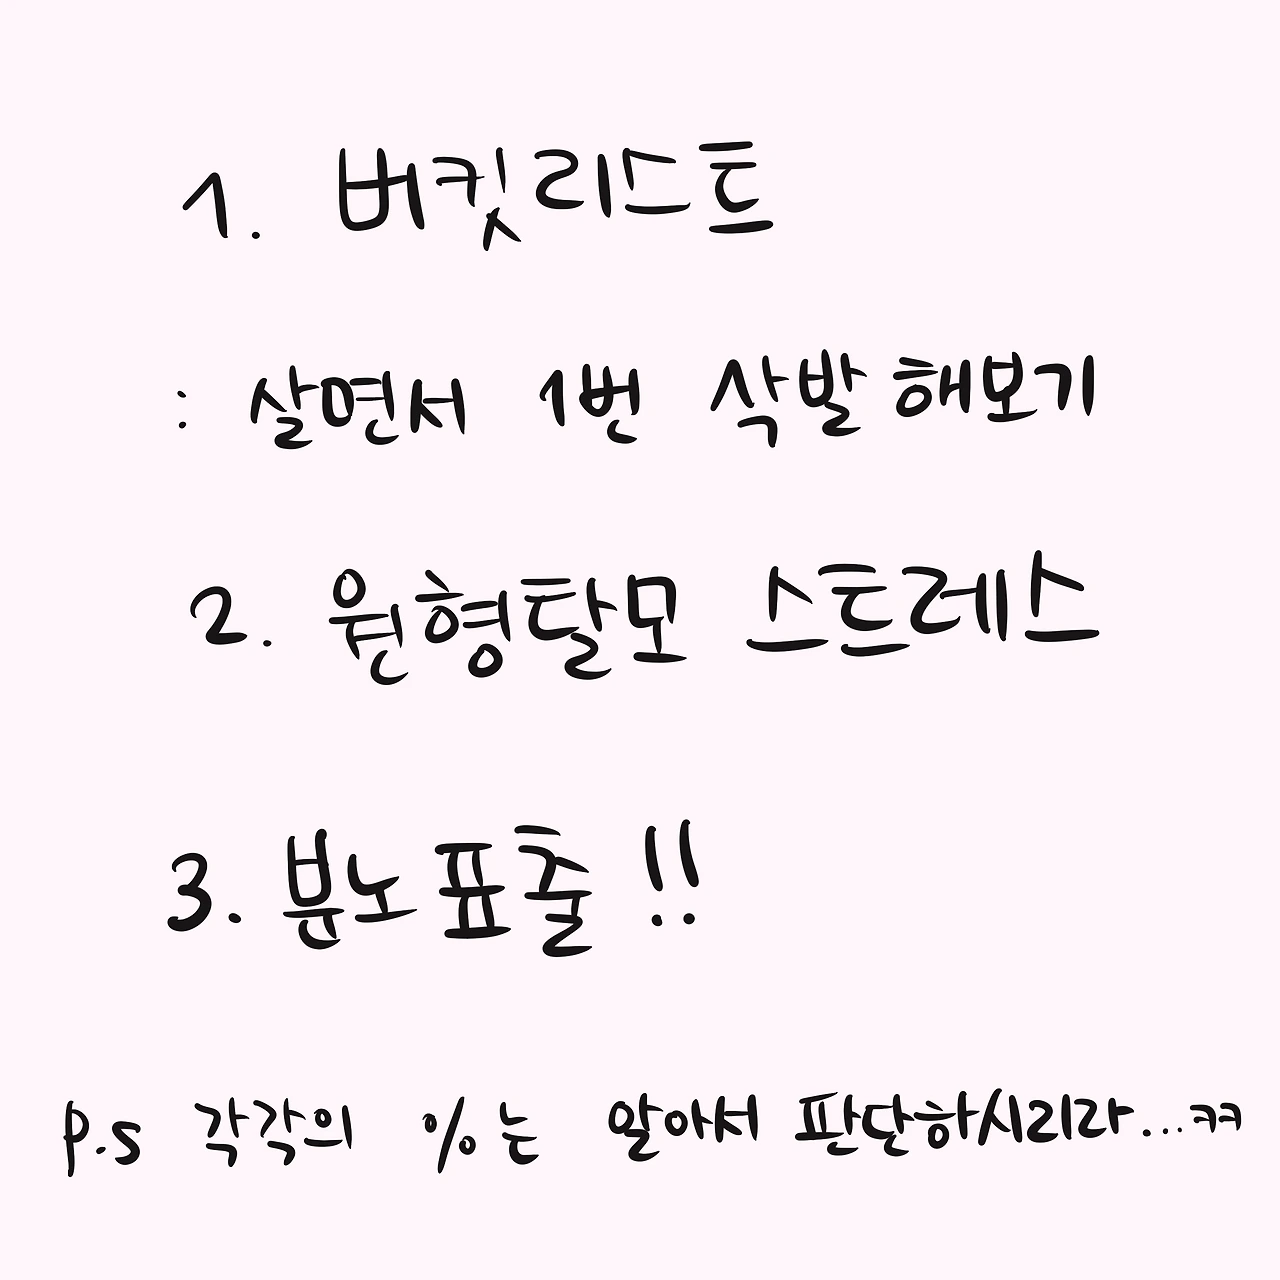 1. 버킷리스트
: 살면서 1번 삭발 해보기
2. 원형탈모 스트레스
3. 분노표출 !!
p.s 각각의 %는 알아서 판단하시리라...ㅋㅋ